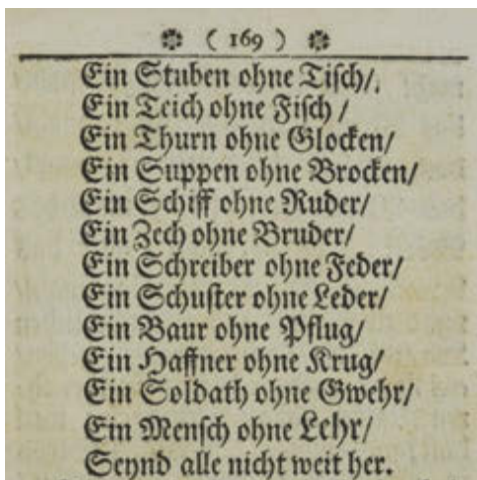 ❁ ( 169 ) ❁
Ein Stuben ohne Tisch/.
Ein Teich ohne Fisch /
Ein Thurn ohne Glocken/
Ein Suppen ohne Brocken/
Ein Schiff ohne Ruder/
Ein Zech ohne Bruder/
Ein Schreiber ohne Feder/
Ein Schuster ohne Leder/
Ein Baur ohne Pflug/
Ein Haffner ohne Krug/
Ein Soldath ohne Gwehr/
Ein Mensch ohne Lehr/
Seynd alle nicht weit her.